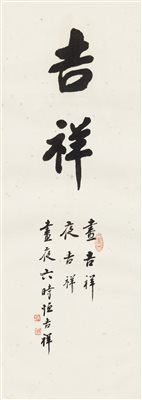 吉祥
晝吉祥
夜吉祥
晝夜六時恆吉祥